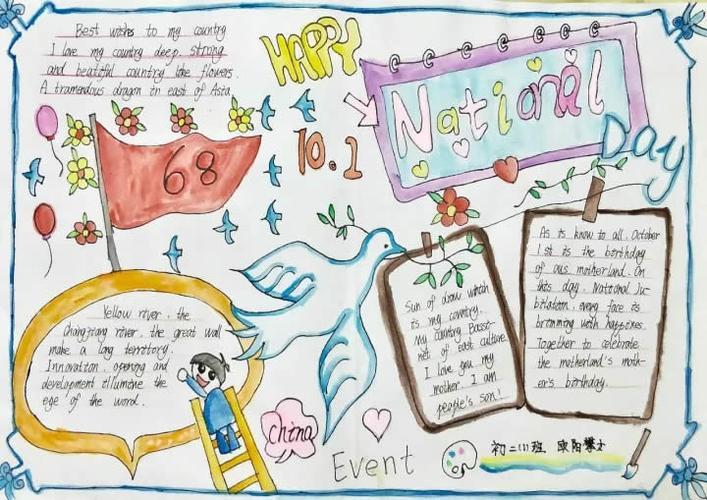 Best wishes to my country
I love my country deep, strong
and beatiful country like flowers.
A tramendous dragon in east of Asia.
HAPPY
10.1
National
Day
68
Yellow river. the
changjiang river. the great wall
make a long territory.
Innovation. opening and
development illumine the
ege of the word.
Sun of draw which
is my country.
My country Basso-
net of east culture
I love you my
mother. I am
people's son!
As is know to all. October
1st is the birthday
of ous motherland. On
this day. National Ju-
bilation. every face is
brimming with happines.
Together to celebrate
the motherland's moth-
er's birthday.
China
Event
初二(1)班 欧阳攀